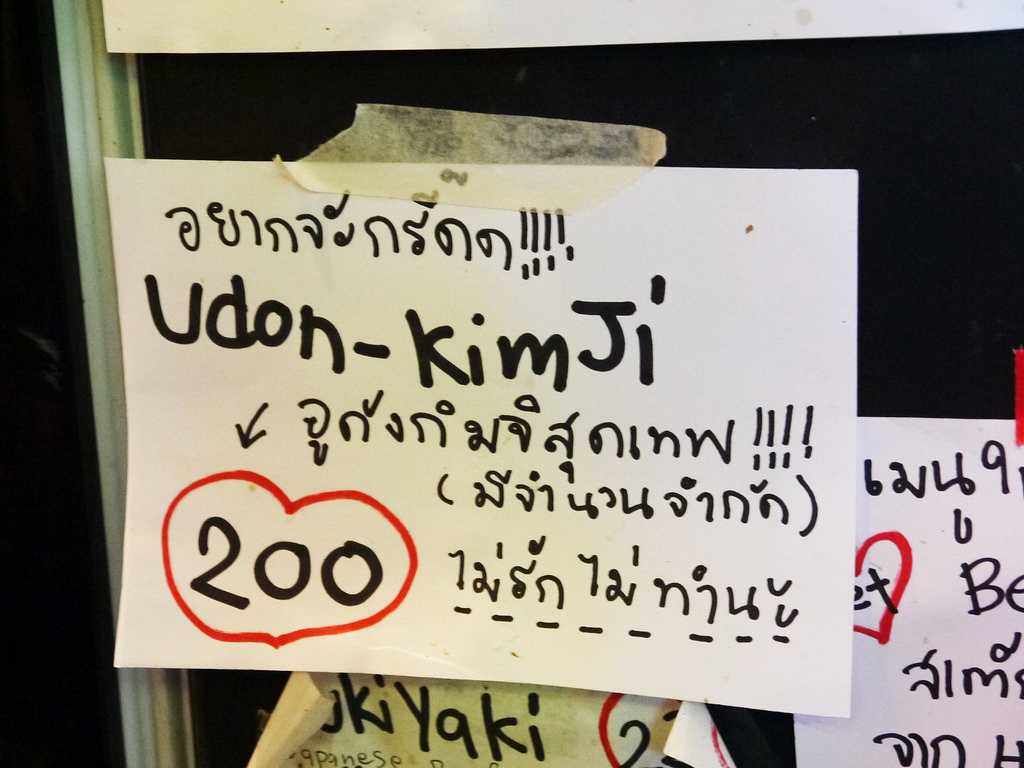 อยากจะกรี๊ดด!!!!
Udon-kimJi
อูด้งกิมจิสุดเทพ!!!!
(มีจำนวนจำกัด)
200
ไม่รัก ไม่ ทำนะ
เมนู
Be
จาก H
kiYaki